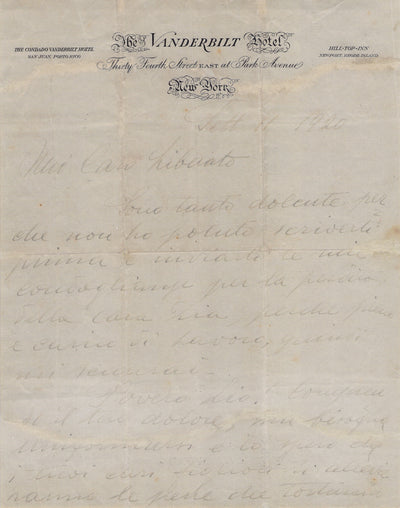 The Vanderbilt Hotel
THE CONDADO VANDERBILT HOTEL
SAN JUAN, PORTO RICO
HILL-TOP-INN
NEWPORT, RHODE ISLAND
Thirty Fourth Street EAST at Park Avenue
New York
Sett 11 1920
Mio Caro Libeiato
Sono tanto dolente per
che non ho potuto scriverti
prima e inviarti le mie
condoglianze per la perdita
della cara Zia, perche pieno
e curvo di lavoro, quindi
mi scuserai.
Povera Zia!
il tuo dolore, ma bisogna
e io spero che
i tuoi cari
ranno le pene che